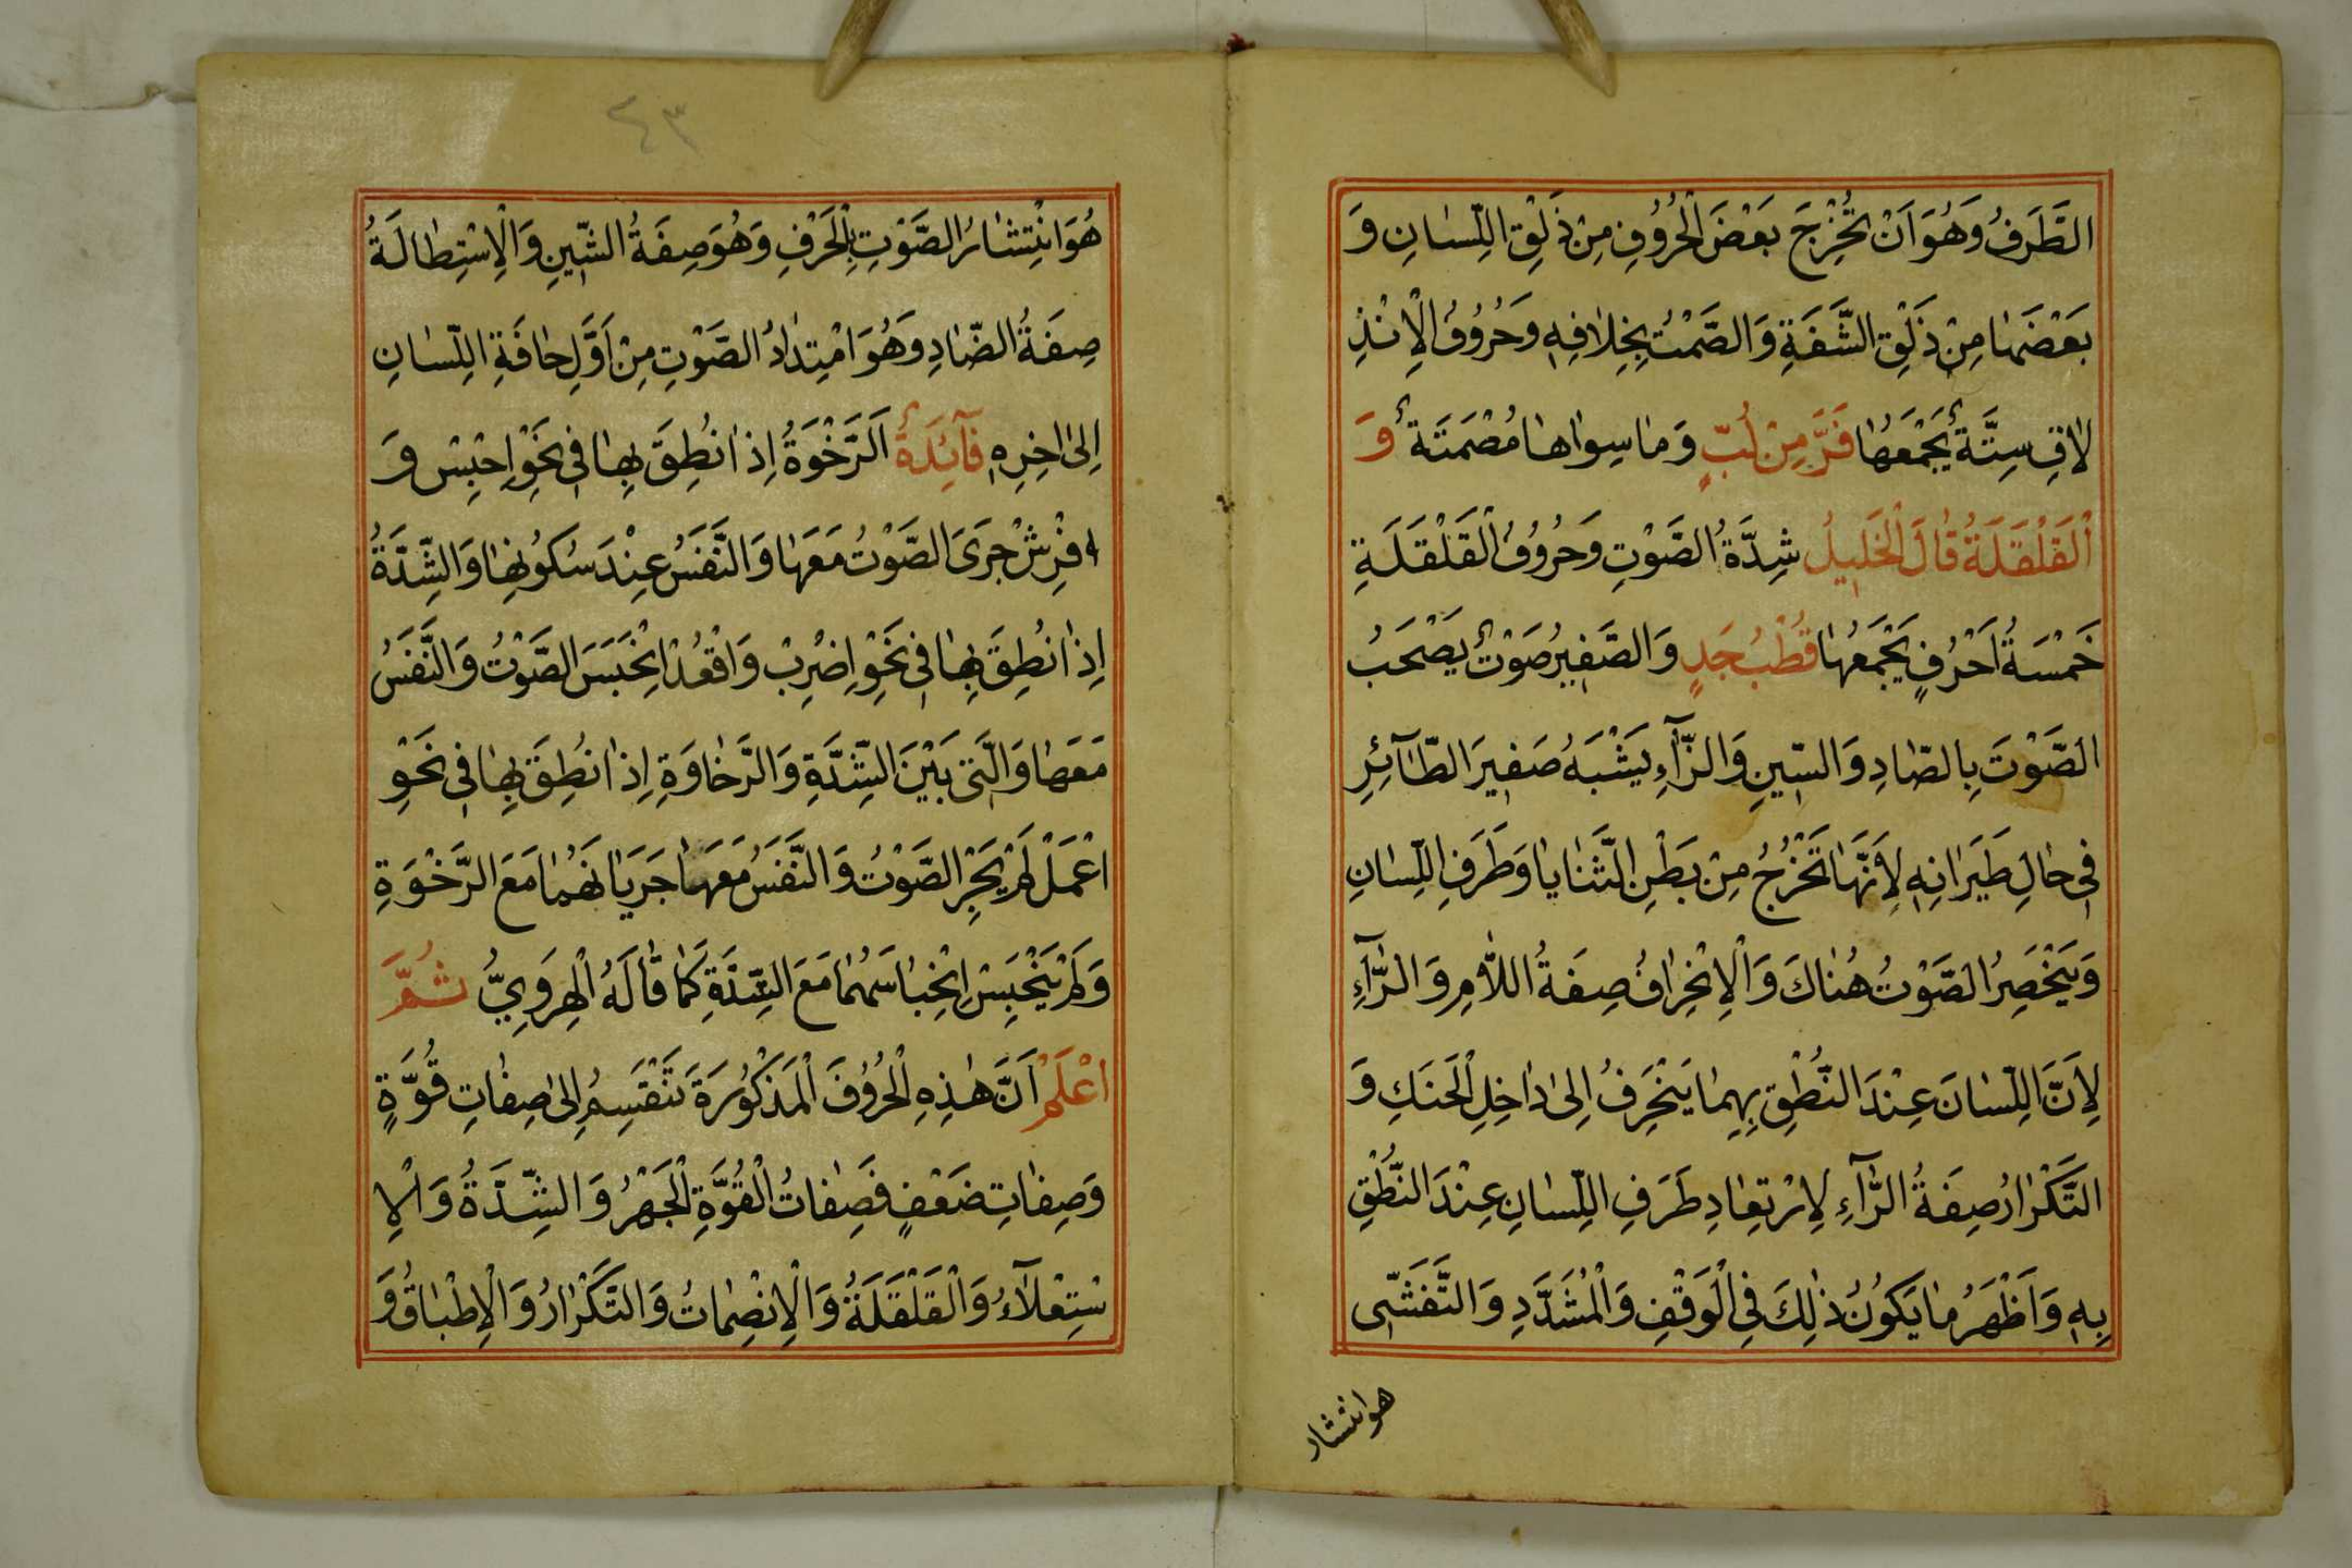 الطَّرَفُ وَهُوَ اَنْ تُخْرِجَ بَعْضَ الْحُرُوُفِ مِنْ ذَلِقِ اللِّسٰانِ وَ
بَعْضَهٰا مِنْ ذَلْقِ الشَّفَةِ وَالصَّمْتُ بِخِلٰافِهِ وَحُرُوُفُ الْاِنْذِ
لٰاقِ سِتَّةٌ يَجْمَعُهٰا فَرَّ مِنْ لُبٍّ وَمٰا سِوٰاهٰا مُصْمَتَةٌ وَ
اَلْقَلْقَلَةُ قٰالَ الْخَلِيلُ شِدَّةُ الصَّوْتِ وَحُرُوُفُ الْقَلْقَلَةِ
خَمْسَةُ اَحْرُفٍ يَجْمَعُهٰا قُطْبُ جَدٍ وَالصَّفِيرُ صَوْتٌ يَصْحَبُ
الصَّوْتَ بِالصّٰادِ وَالسّينِ وَالزّٰآءِ يَشْبَهُ صَفِيرَ الطّٰآئِرِ
فِي حٰالِ طَيَرٰانِهِ لِاَنَّهٰا تَخْرُجُ مِنْ بَطْنِ الثَّنٰايٰا وَطَرَفِ اللِّسٰانِ
وَيَنْحَصِرُ الصَّوْتُ هُنٰاكَ وَالْاِنْحِرٰافُ صِفَةُ اللّٰامِ وَالرّٰآءِ
لِاَنَّ اللِّسٰانَ عِنْدَ النُّطْقِ بِهِمٰا يَنْحَرِفُ اِلىٰ دٰاخِلِ الْحَنَكِ وَ
التَّكْرٰارُ صِفَةُ الرّٰآءِ لِارْتِعٰادِ طَرَفِ اللِّسٰانِ عِنْدَ النُّطْقِ
بِهِ وَاَظْهَرُ مٰا يَكُوُنُ ذٰلِكَ فِي الْوَقْفِ وَالْمُشَدَّدِ وَالتَّفَشّى
هو انتشار
٤٣
هُوَ انْتِشٰارُ الصَّوْتِ بِالْحَرْفِ وَهُوَ صِفَةُ الشّينِ وَالْاِسْتِطٰالَةُ
صِفَةُ الضّٰادِ وَهُوَ امْتِدٰادُ الصَّوْتِ مِنْ اَوَّلِ حٰافَةِ اللِّسٰانِ
اِلىٰ اخِرِهِ فٰآئِدَةٌ اَلرَّخْوَةُ اِذٰا نُطِقَ بِهٰا فِي نَحْوِ اِحْبِسْ وَ
افْرِشْ جَرَىَ الصَّوْتُ مَعَهٰا وَالنَّفَسُ عِنْدَ سُكُوُنِهٰا وَالشِّدَّةُ
اِذٰا نُطِقَ بِهٰا فِي نَحْوِ اِضْرِبْ وَاقْعُدْ اِنْحَبَسَ الصَّوْتُ وَالنَّفَسُ
مَعَهٰا وَالَّتي بَيْنَ الشِّدَّةِ وَالرَّخٰاوَةِ اِذٰا نُطِقَ بِهٰا فِي نَحْوِ
اعْمَلْ لَمْ يَجْرِ الصَّوْتُ وَالنَّفَسُ مَعَهٰا جَرَيٰانَهُمٰا مَعَ الرَّخْوَةِ
وَلَمْ يَنْحَبِسْ اِنْحِبٰاسَهُمٰا مَعَ الشِّدَّةِ كَمٰا قٰالَهُ الْهِرَوِيُّ ثُمَّ
اعْلَمْ اَنَّ هٰذِهِ الْحُرُوُفَ الْمَذْكُوُرَةَ تَنْقَسِمُ اِلىٰ صِفٰاتِ قُوَّةٍ
وَصِفٰاتِ ضَعْفٍ فَصِفٰاتُ الْقُوَّةِ الْجَهْرُ وَالشِّدَّةُ وَالْاِ
سْتِعْلٰآءُ وَالْقَلْقَلَةُ وَالْاِنْصِمٰاتُ وَالتَّكْرٰارُ وَالْاِطْبٰاقُ وَ